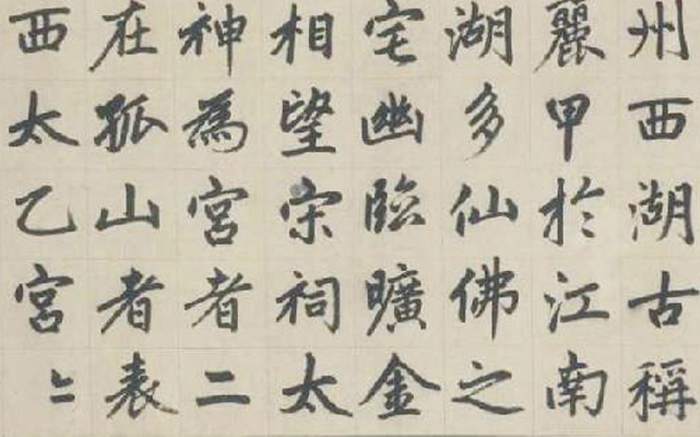 州西湖古稱
麗甲於江南
湖多仙佛之
宅幽臨曠金
相望宋祠太
神為宮者二
在孤山者表
西太乙宮〻